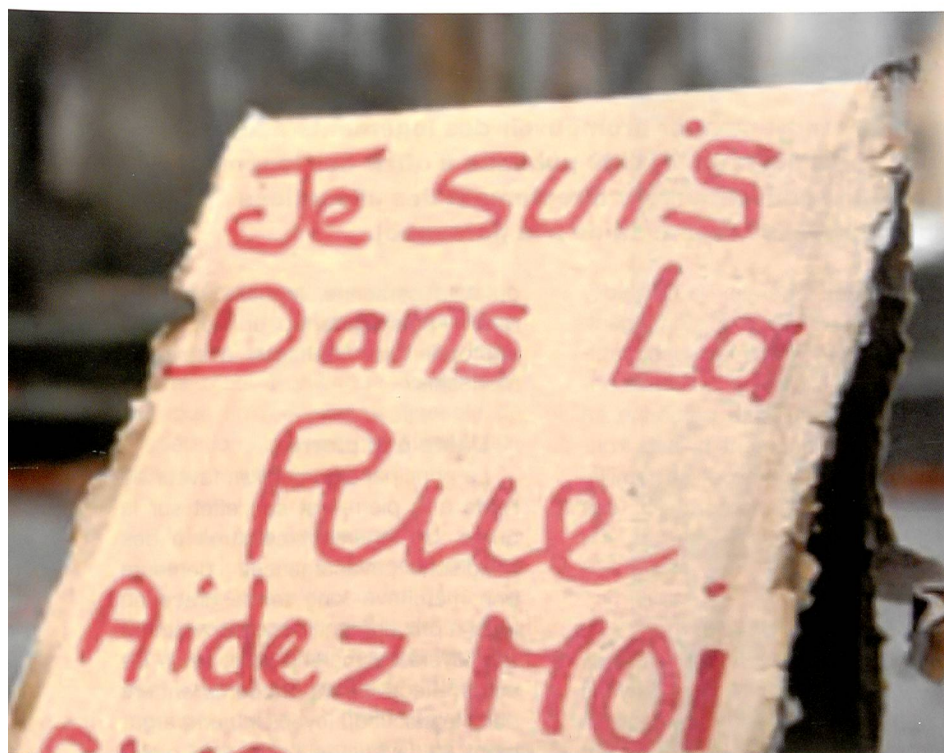 Je suis
Dans La
Rue
Aidez Moi